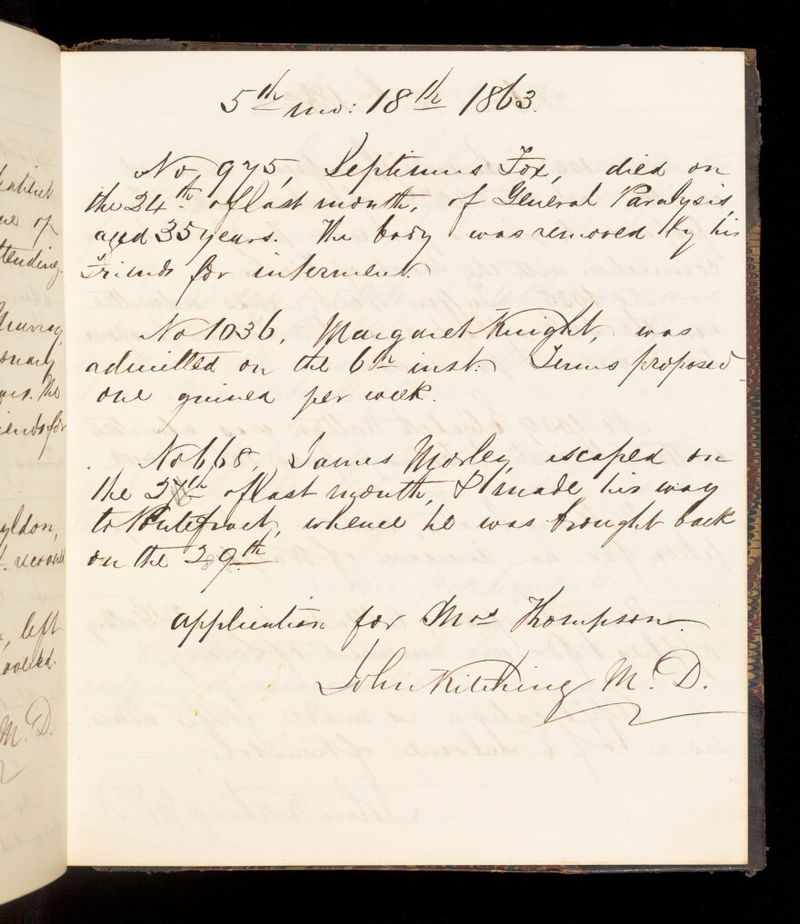 5th mo: 18th 1863.
No. 975, Septimus Fox, died on
the 24th of last month, of General Paralysis,
aged 35 years. The body was removed by his
Friends for interment.
No 1036, Margaret Knight, was
admitted on the 6th inst. Terms proposed
one guinea per week.
No 668, James Morley, escaped on
the 27th of last month, & made his way
to Pontefract, whence he was brought back
on the 29th
Application for Mrs Thompson.
John Kitching M.D.
ne of
ttending.
Murray,
onary
ars. The
iends for
yldon,
left
M.D.